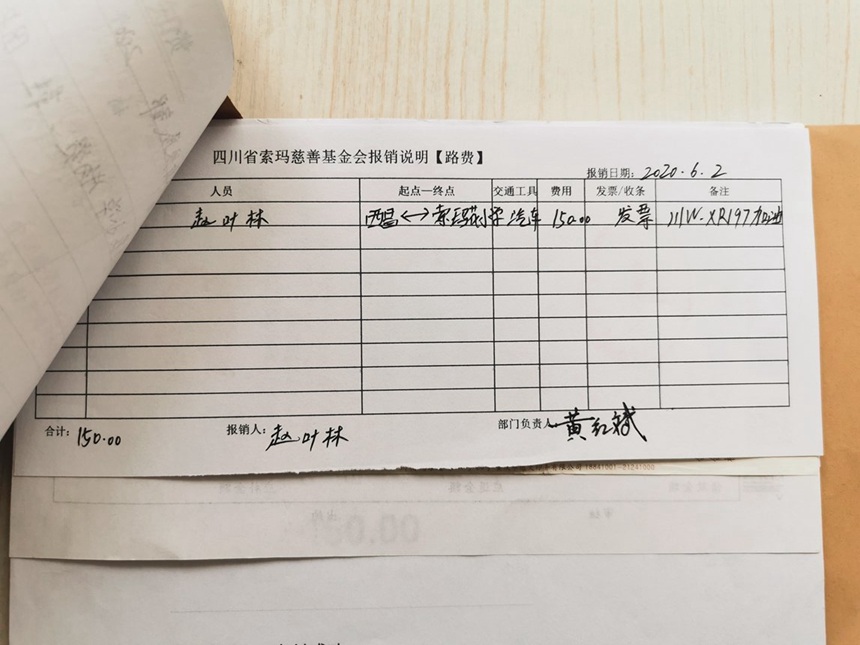 四川省索玛慈善基金会报销说明【路费】
报销日期: 2020.6.2
人员 起点—终点 交通工具 费用 发票/收条 备注
赵叶林 西昌<->索玛花小学 汽车 150.00 发票 川W-XR197加油
合计: 150.00 报销人: 赵叶林 部门负责人 黄红斌
有限公司 18841001-21241000